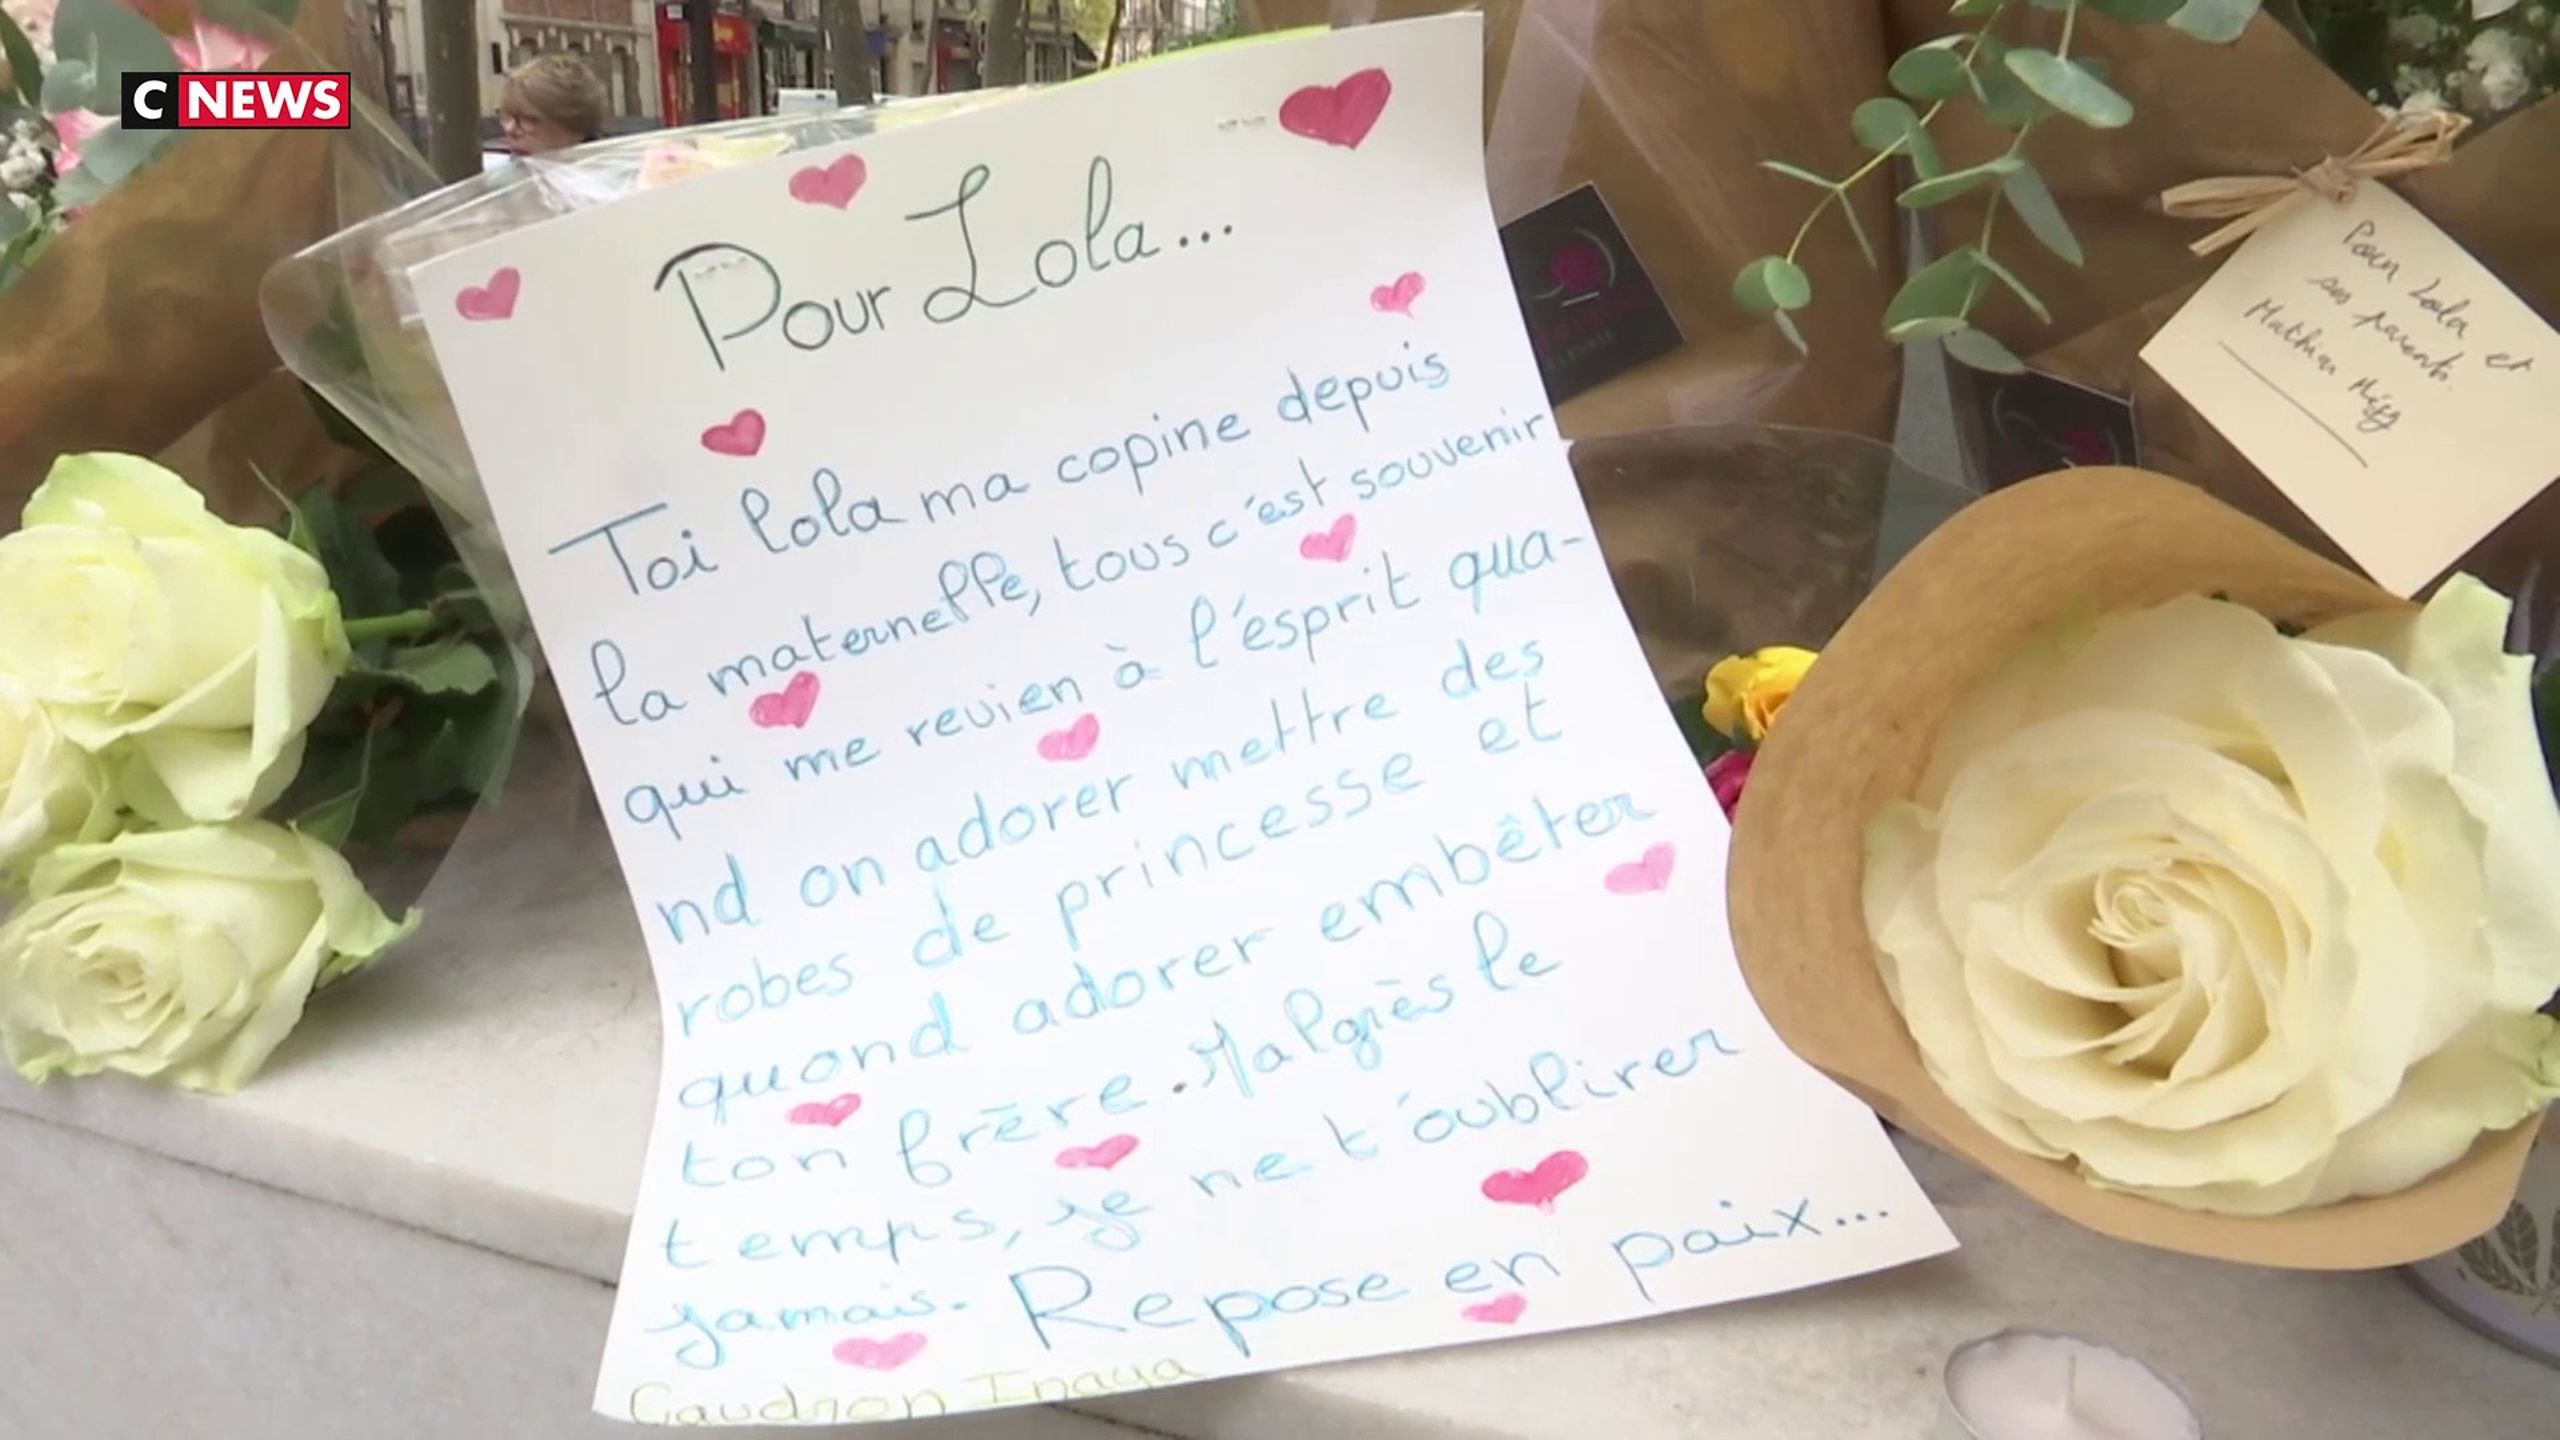 C NEWS
Pour Lola...
Toi lola ma copine depuis
la maternelle, tous c'est souvenir
qui me revien à l'ésprit qua-
nd on adorer mettre des
robes de princesse et
quond adorer embêter
ton frère. Malgrès le
temps, je ne t'oublirer
jamais. Repose en paix...
Gaudron Inaya
Pour Lola et
ses parents.